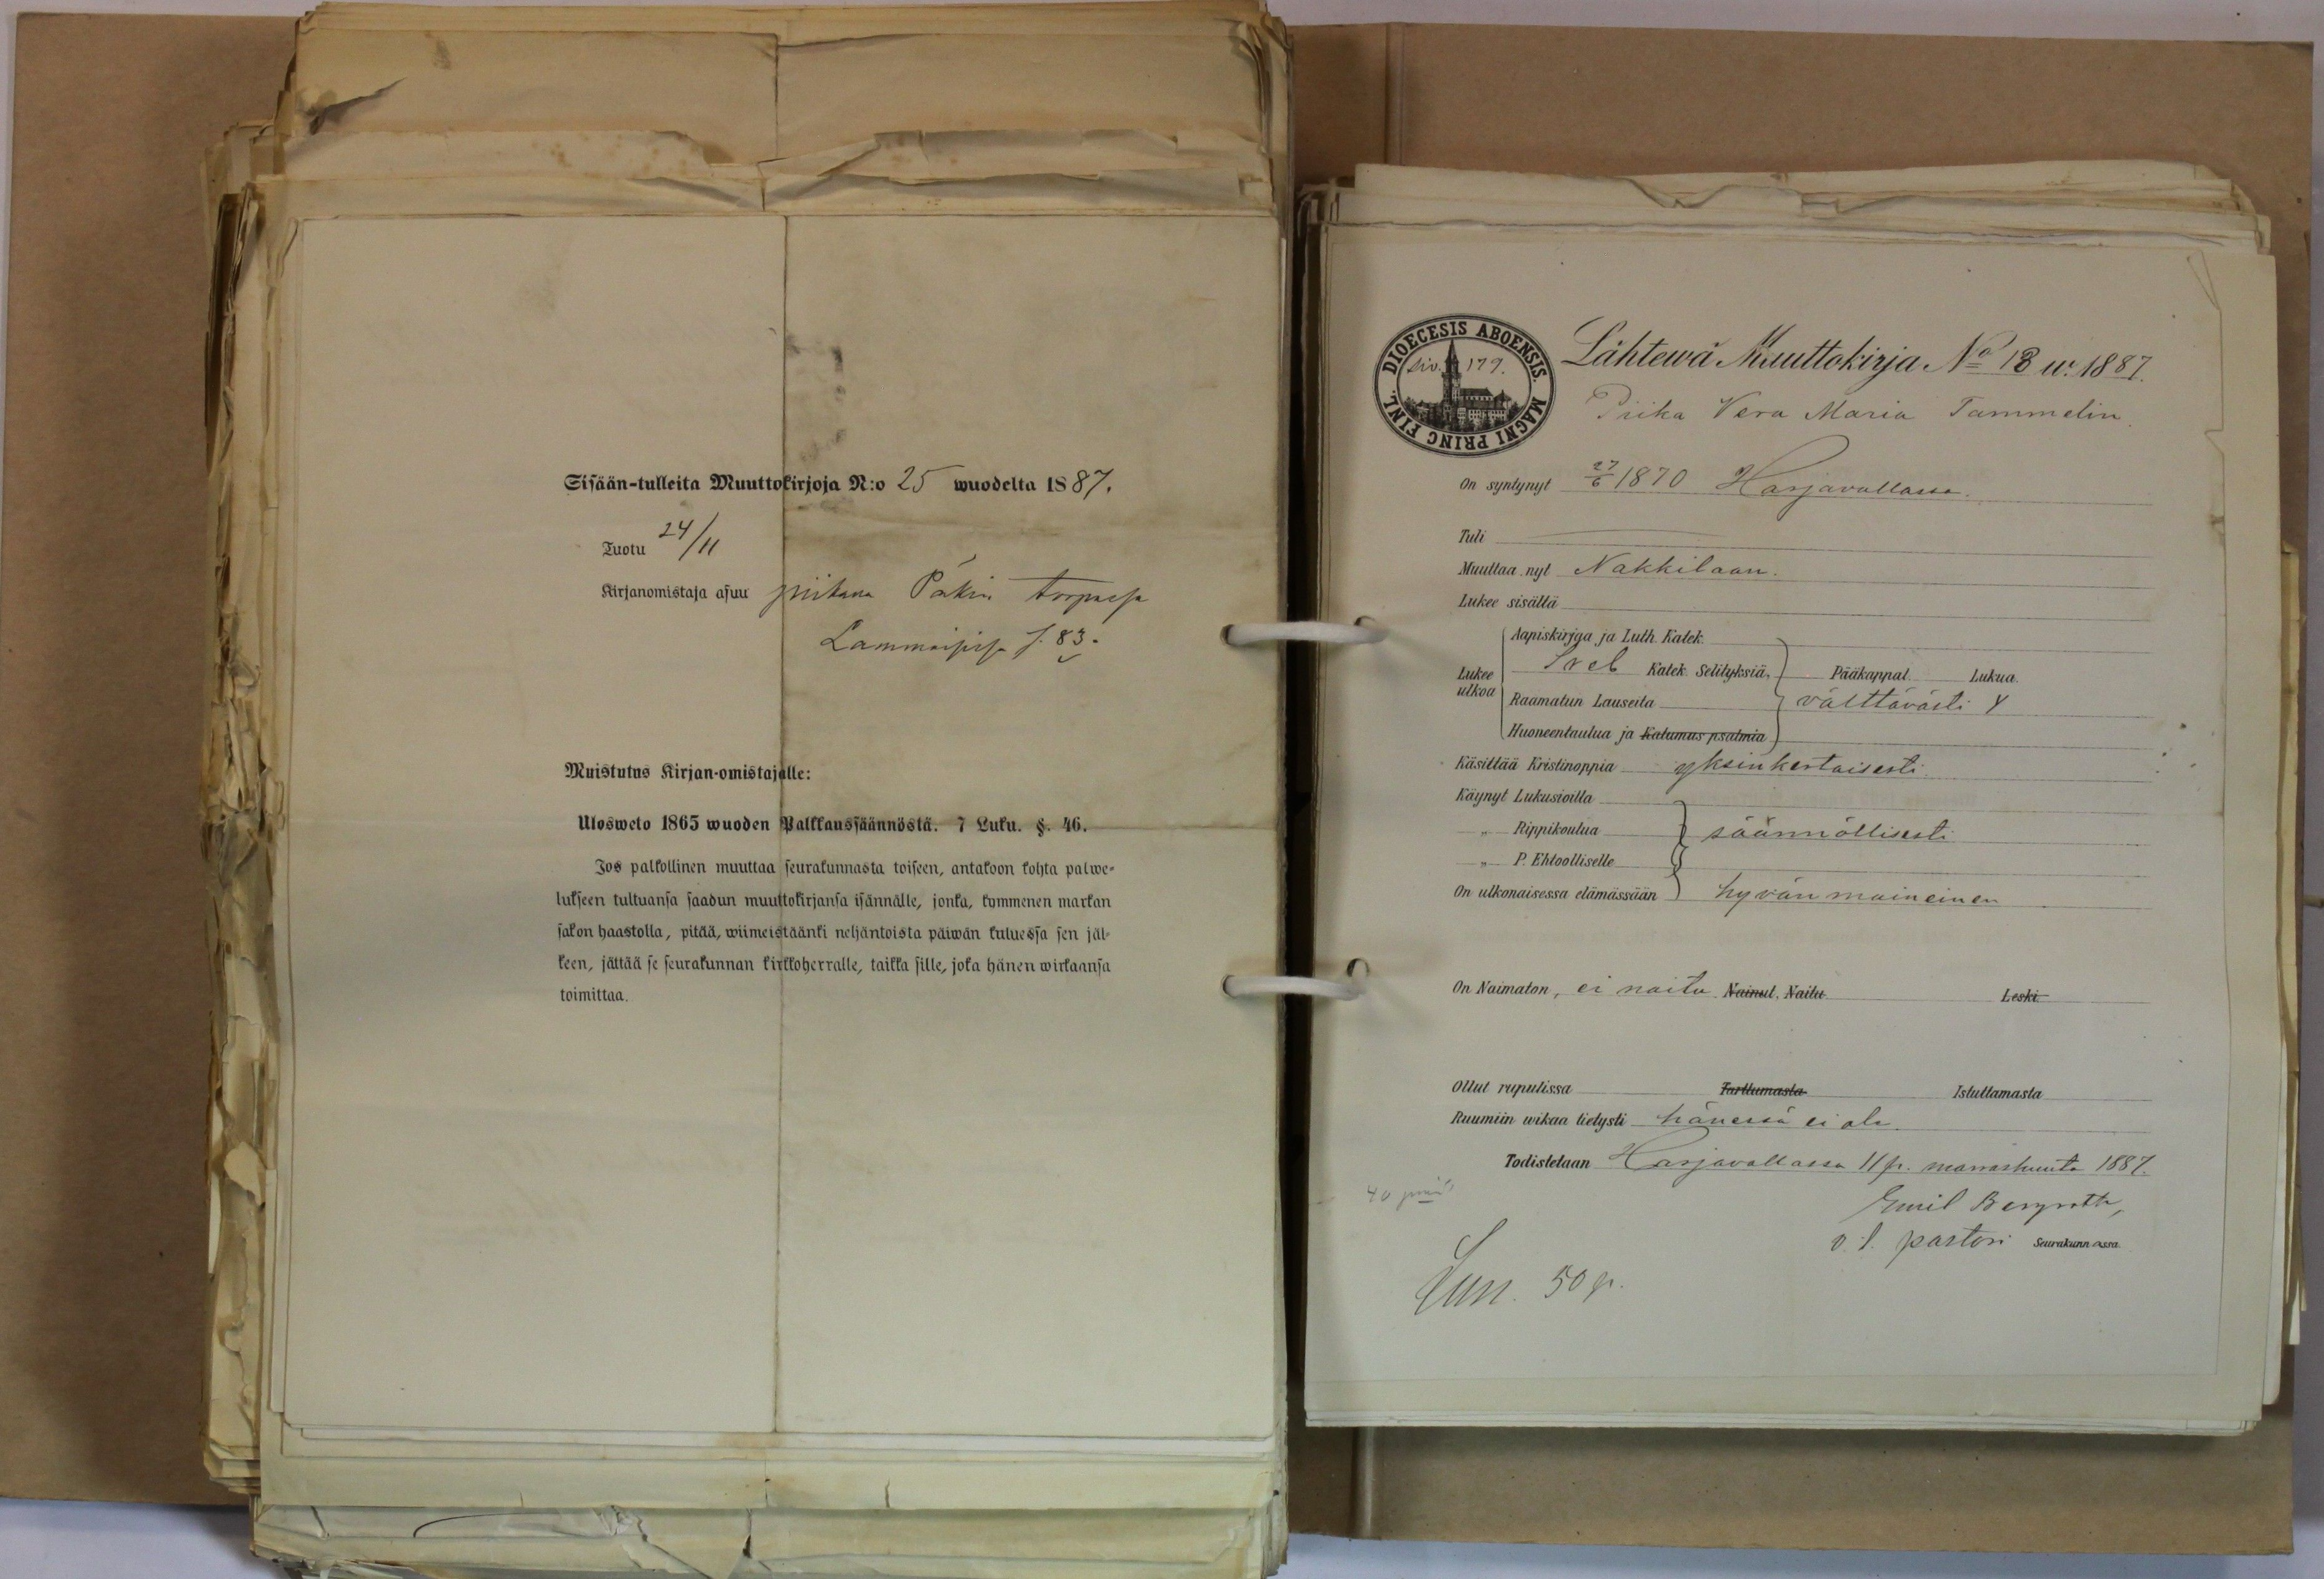 Sisään-tulleita Muuttokirjoja N:o 25 wuodelta 1887.
Tuotu 24/11
Kirjanomistaja asuu piikana Päkin torpassa
Lammaisissa s. 83.
Muistutus Kirjan-omistajalle:
Uloswelo 1865 wuoden Palkkaussäännöstä. 7 Luku. §. 46.
Jos palkollinen muuttaa seurakunnasta toiseen, antakoon kohta palwe-
lukseen tultuansa saadun muuttokirjansa isännälle, jonka, kymmenen markan
sakon haastolla, pitää, wiimeistäänki neljäntoista päiwän kuluessa sen jäl-
keen, jättää se seurakunnan kirkkoherralle, taikka sille, joka hänen wirkaansa
toimittaa.
DIOECESIS ABOENSIS. MAGNI PRINC FINL.
siv. 179.
Lähtewä Muuttokirja No 18 w. 1887.
Piika Vera Maria Tammelin.
On syntynyt 27/6 1870 Harjavallassa.
Tuli
Muuttaa nyt Nakkilaan.
Lukee sisältä
Aapiskirjga ja Luth. Katek.
Lukee ulkoa Sveb Katek. Selityksiä, Pääkappal. Lukua.
Raamatun Lauseita välttävästi
Huoneentaulua ja Katumus psalmia
Käsittää Kristinoppia yksinkertaisesti.
Käynyt Lukusioilla
" Rippikoulua säännöllisesti
" P. Ehtoolliselle
On ulkonaisessa elämässään hyvän maineinen
On Naimaton, ei naitu. Nainut, Naitu Leski.
Ollut rupulissa Tarttumasta Istuttamasta
Ruumiin wikaa tietysti hänessä ei ole.
Todistetaan Harjavallassa 11 p. marraskuuta 1887.
Emil Bergroth,
v. t. pastori Seurakunnassa.
40
50 p.